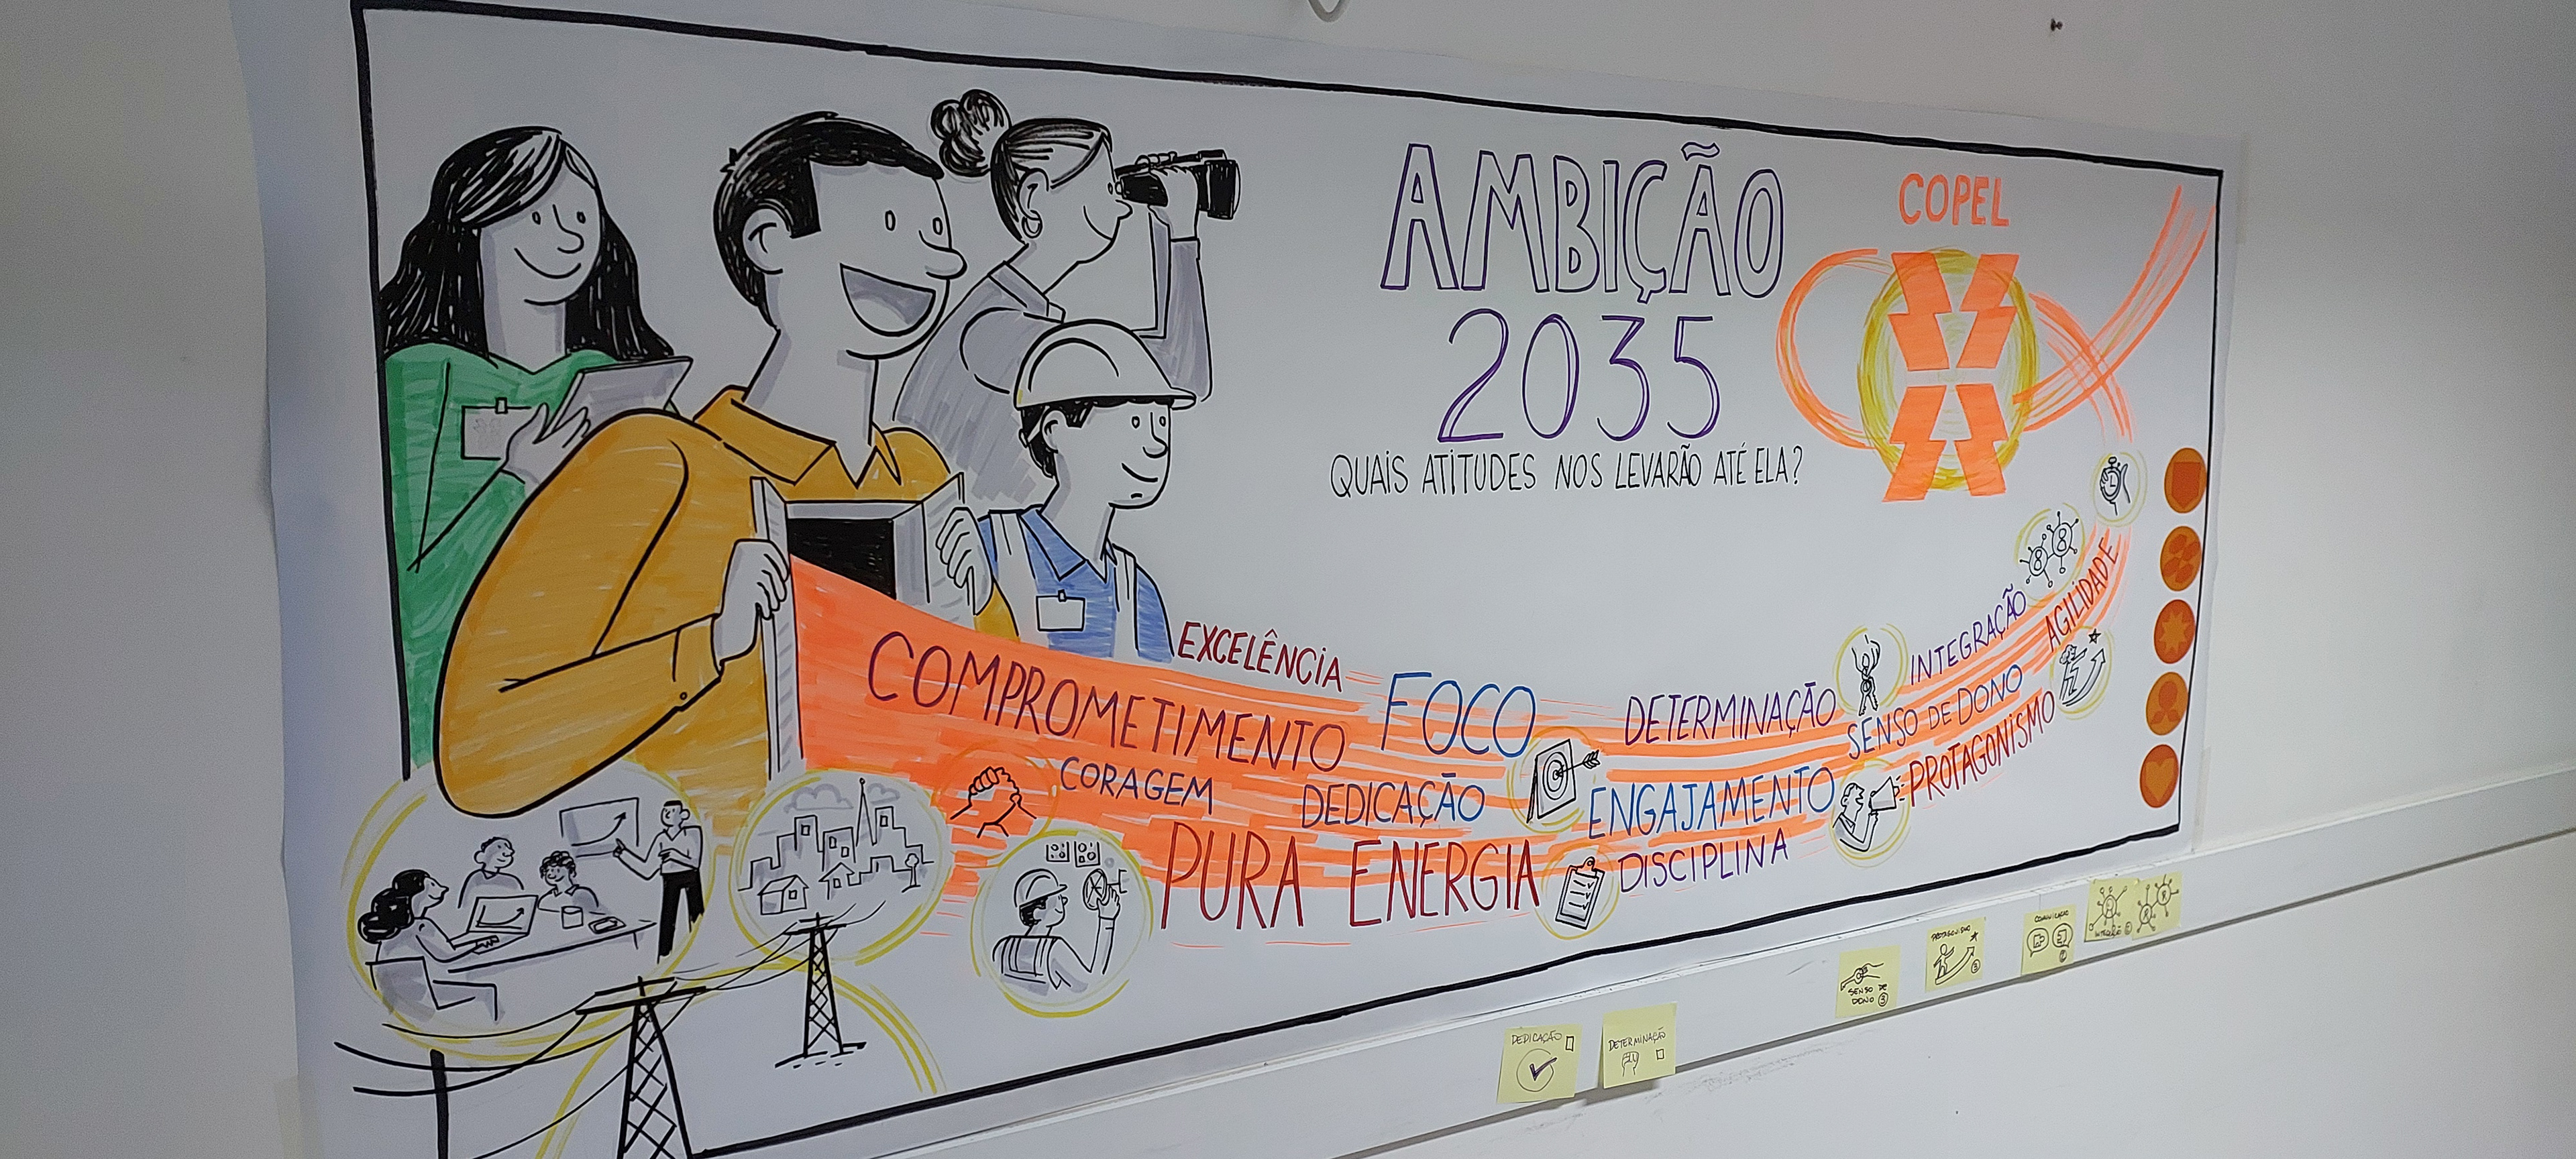 AMBIÇÃO
2035
QUAIS ATITUDES NOS LEVARÃO ATÉ ELA?
COPEL
EXCELÊNCIA
COMPROMETIMENTO
FOCO
DETERMINAÇÃO
INTEGRAÇÃO
AGILIDADE
CORAGEM
DEDICAÇÃO
ENGAJAMENTO
SENSO DE DONO
PROTAGONISMO
PURA ENERGIA
DISCIPLINA
DEDICAÇÃO
DETERMINAÇÃO
SENSO DE
DONO 3
PROTAGONISMO
COMUNICAÇÃO
INTEGRAÇÃO